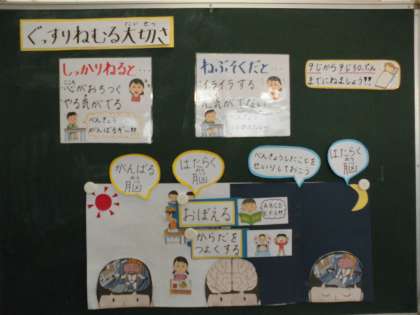 ぐっすりねむる大切さ
たいせつ
しっかりねると…
心がおちつく
やる気がでる
べんきょう
がんばるぞー!!
ねぶそくだと…
イライラする
元気がでない
9じから9じ30ぷん
までにねましょう!!
がんばる
脳
はたらく
脳
べんきょうしたことを
せいりしておこう
はたらく
脳
おぼえる
ABCD
からだを
つよくする